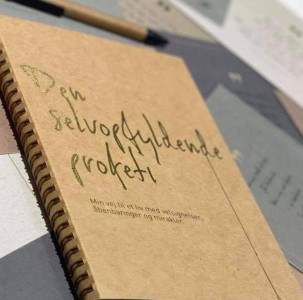 Den
selvopfyldende
profeti
Min vej til et liv med velsignelser,
åbenbaringer og mirakler.